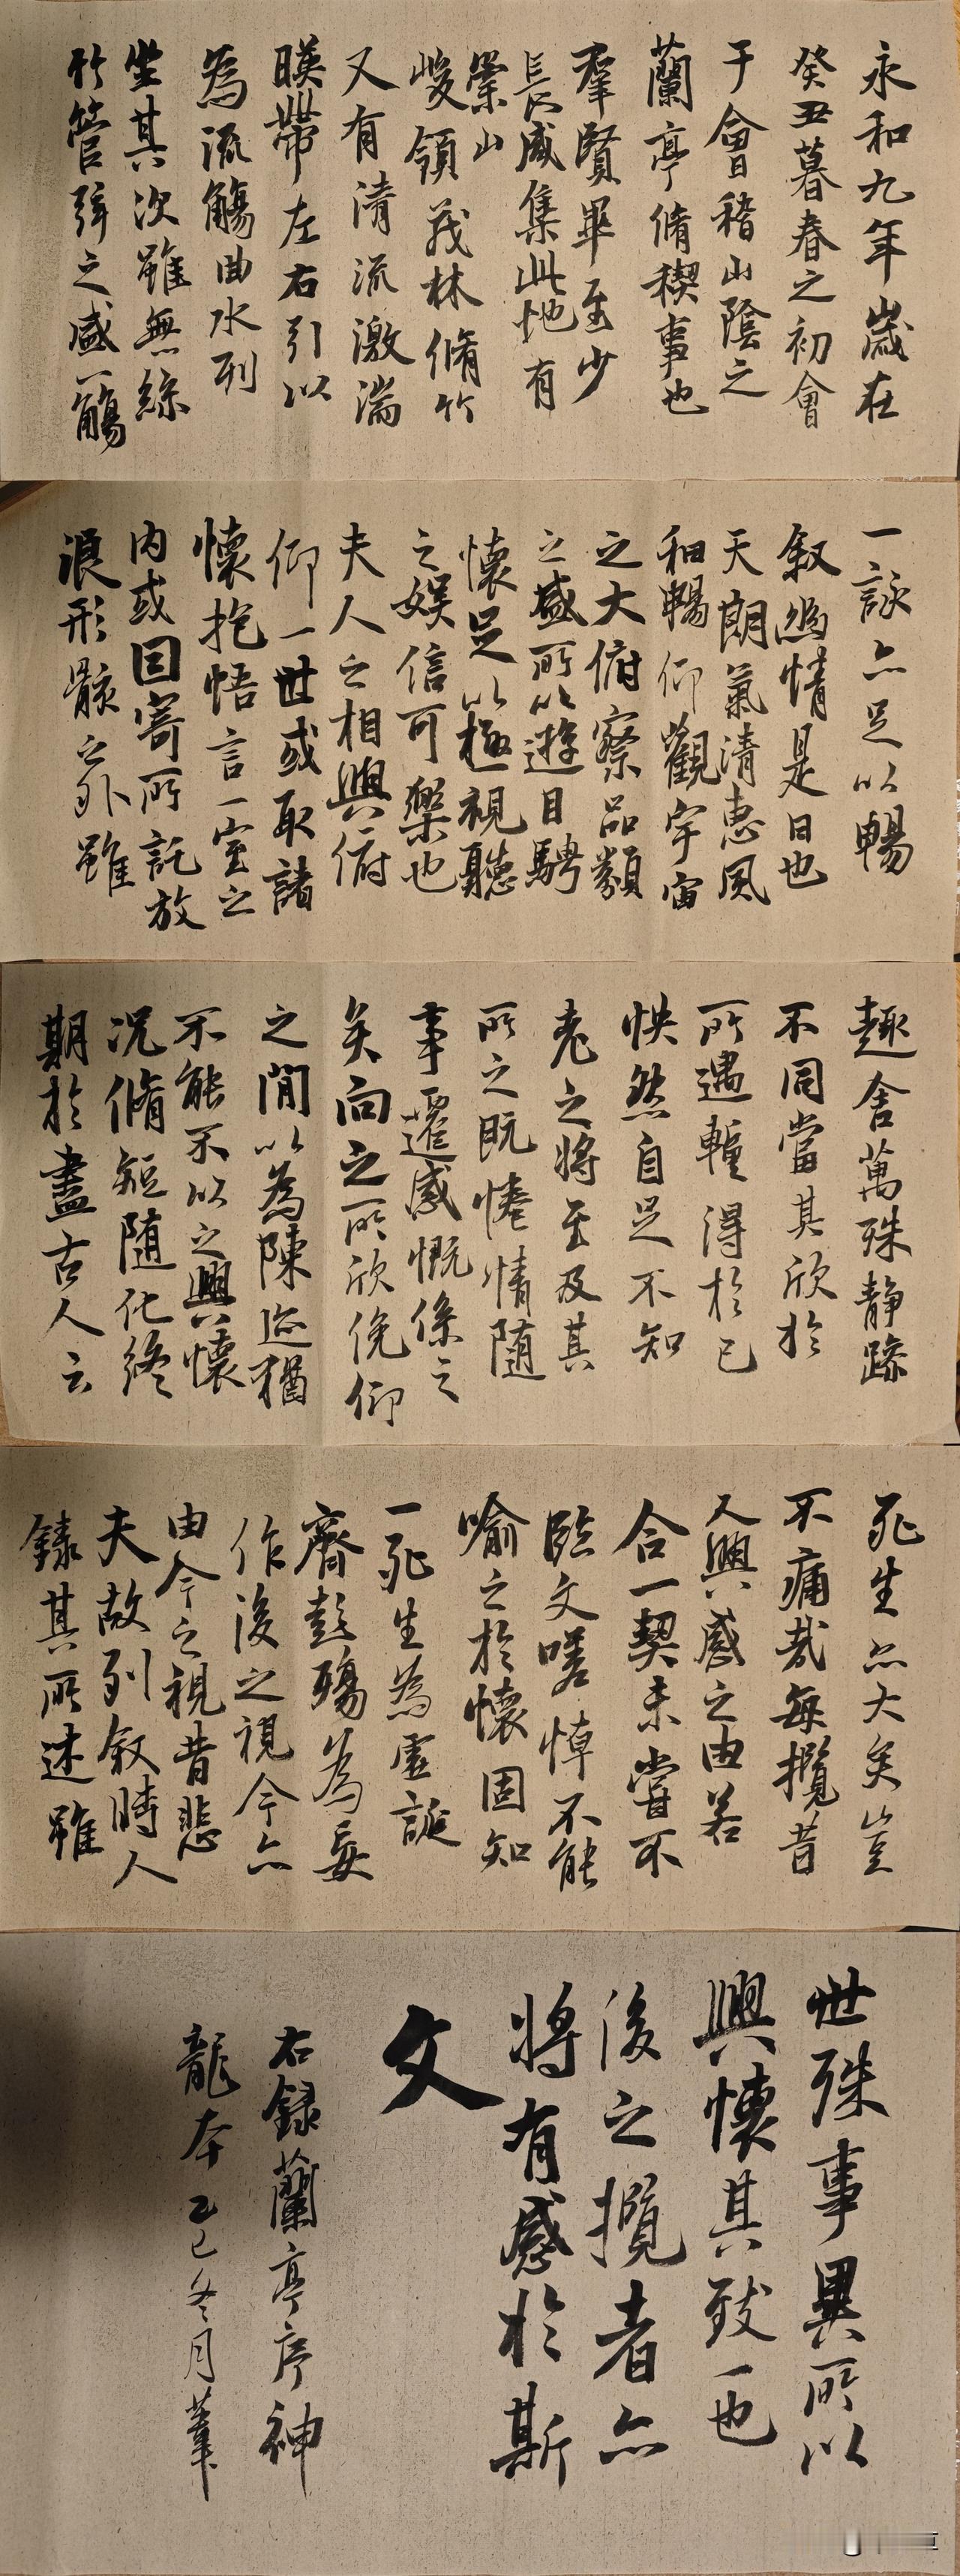 永和九年歲在
癸丑暮春之初會
于會稽山陰之
蘭亭脩稧事也
羣賢畢至少
長咸集此地有
崇山
峻領茂林脩竹
又有清流激湍
暎帶左右引以
為流觴曲水列
坐其次雖無絲
竹管弦之盛一觴
一詠亦足以暢
叙幽情是日也
天朗氣清惠風
和暢仰觀宇宙
之大俯察品類
之盛所以遊目騁
懷足以極視聽
之娱信可樂也
夫人之相與俯
仰一世或取諸
懷抱悟言一室之
內或因寄所託放
浪形骸之外雖
趣舍萬殊靜躁
不同當其欣於
所遇暫得於己
怏然自足不知
老之將至及其
所之既惓情隨
事遷感慨係之
矣向之所欣俛仰
之間以為陳迹猶
不能不以之興懷
況脩短隨化終
期於盡古人云
死生亦大矣豈
不痛哉每攬昔
人興感之由若
合一契未嘗不
臨文嗟悼不能
喻之於懷固知
一死生為虛誕
齊彭殤為妄
作後之視今亦
由今之視昔悲
夫故列叙時人
錄其所述雖
世殊事異所以
興懷其致一也
後之攬者亦
將有感於斯
文
右録蘭亭序神
龍本乙巳冬月葦